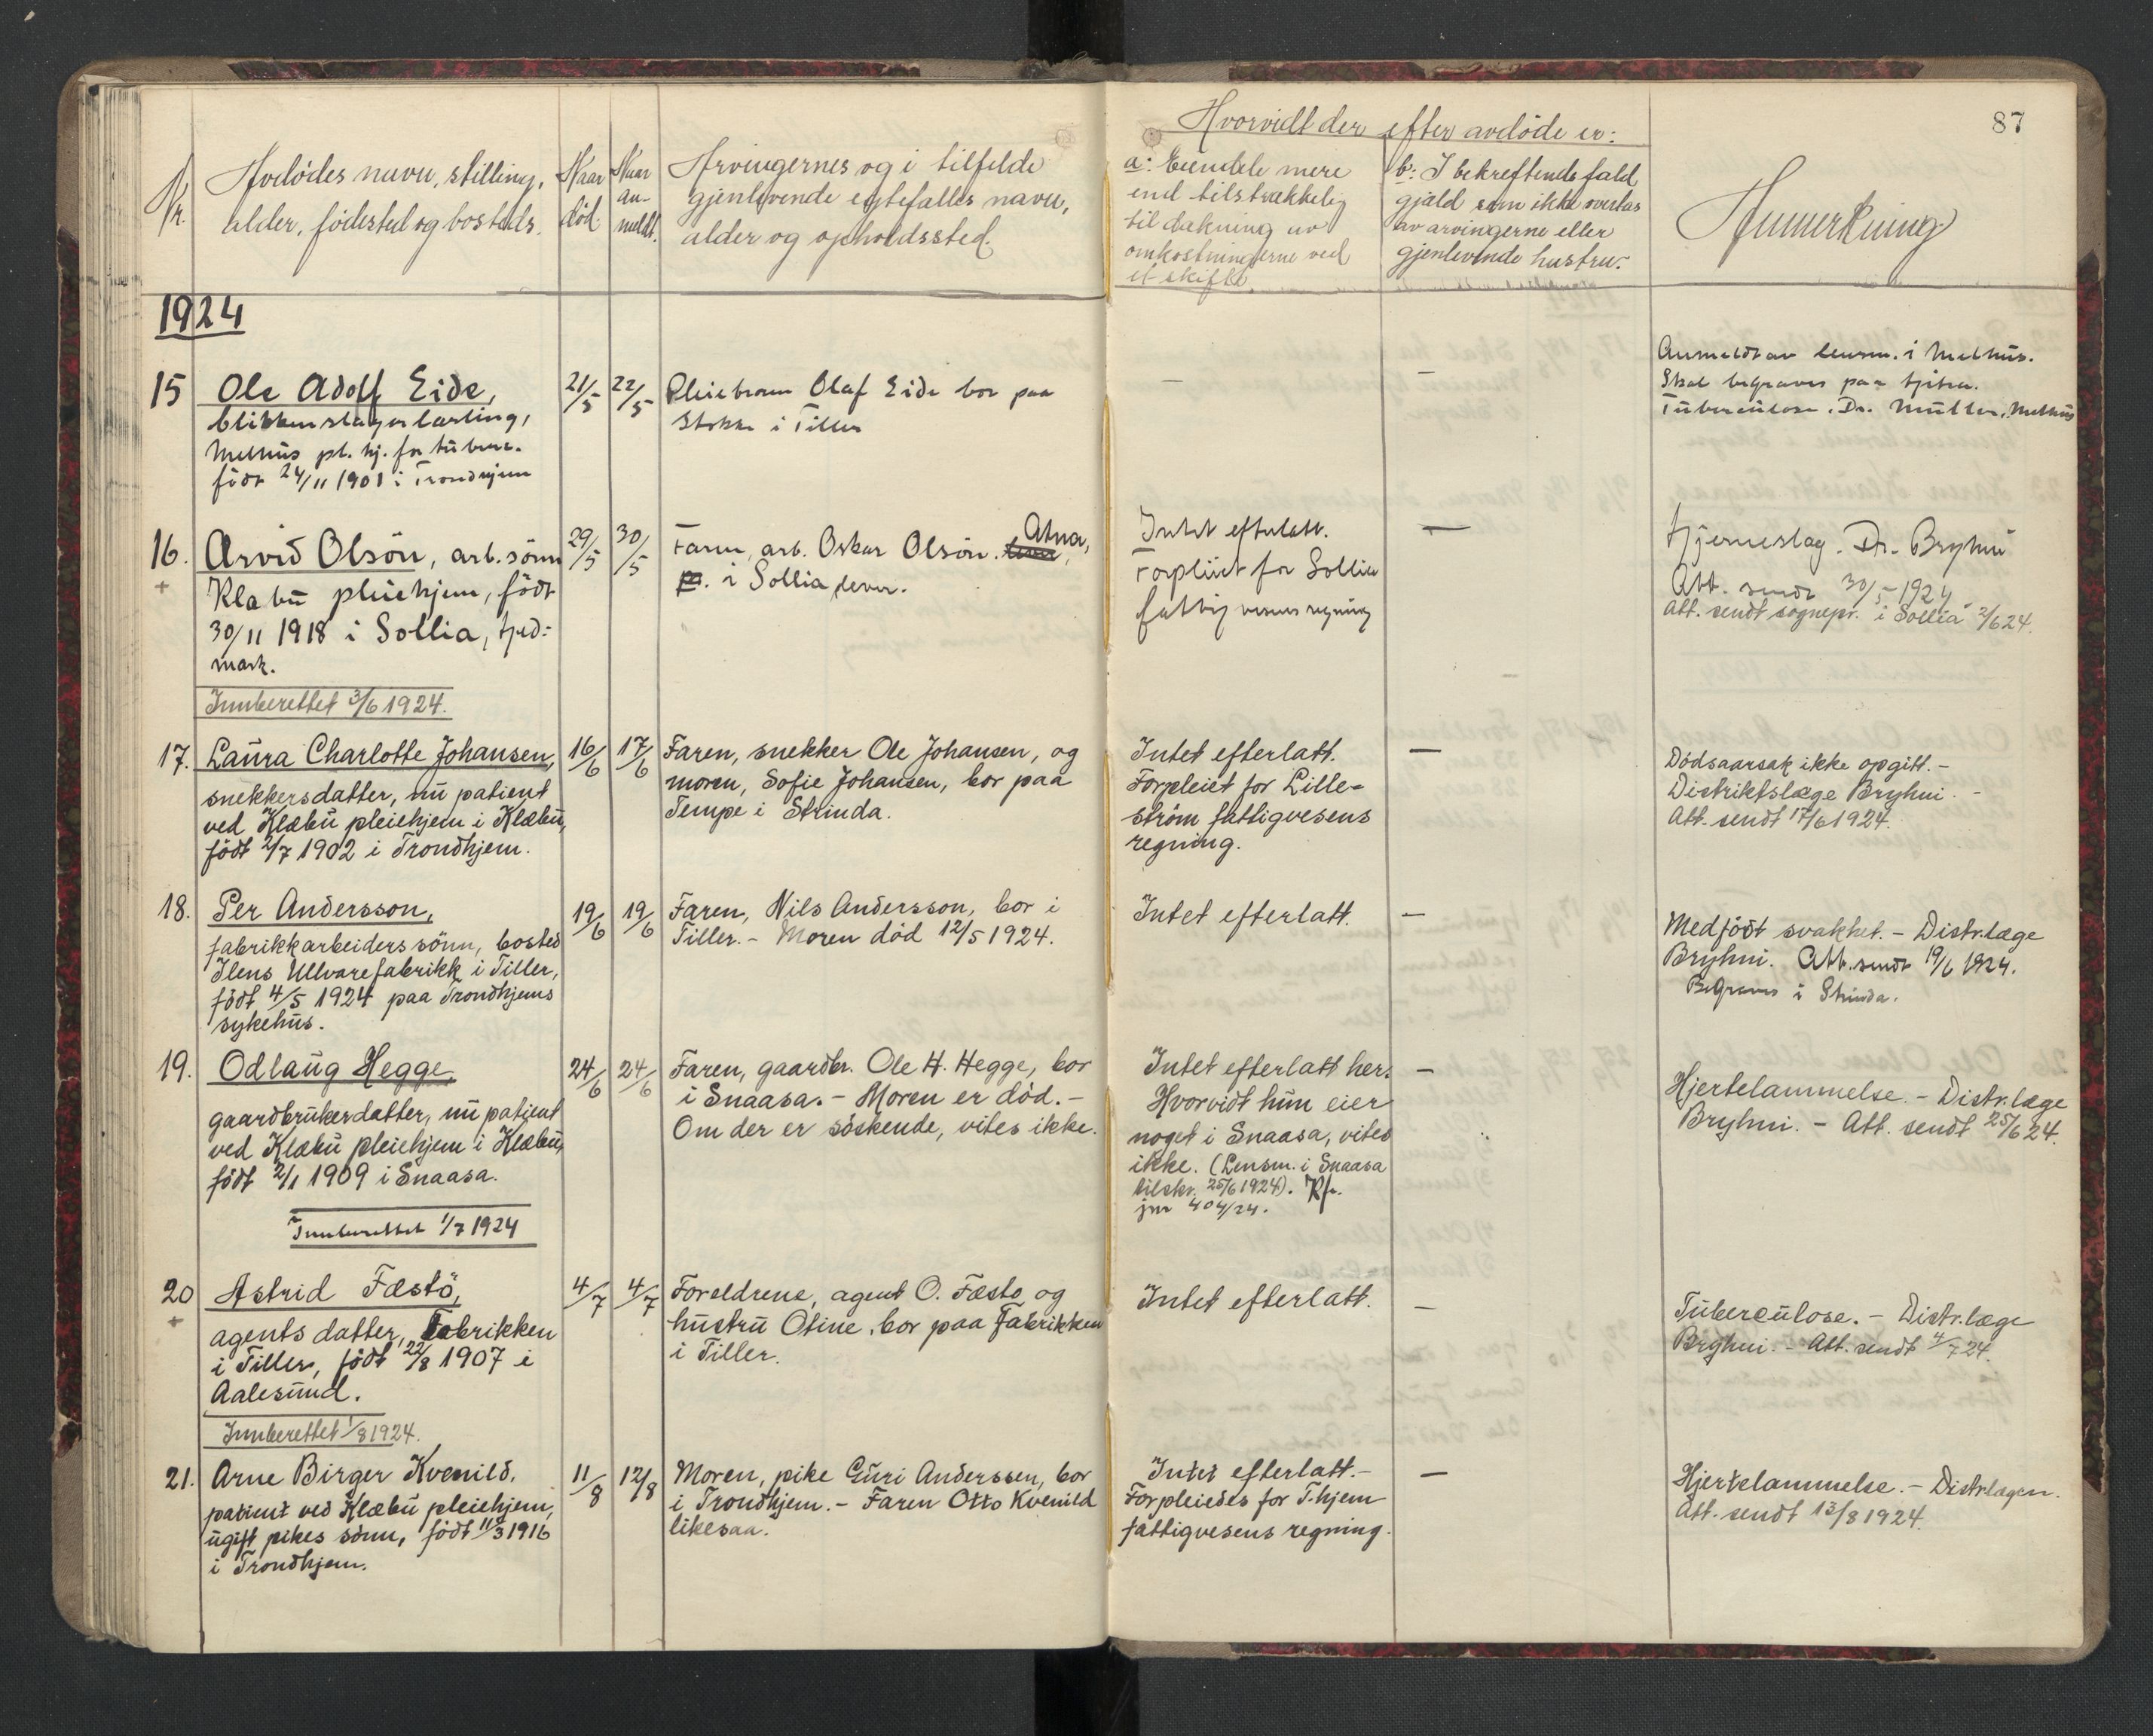 87
Nr.
Avdödes navn, stilling,
alder, födested og bosteds.
Naar
död.
Naar
an-
meldt.
Arvingernes og i tilfelde
gjenlevende egtefælles navn,
alder og opholdssted.
Hvorvidt der efter avdöde er:
a: Eiendele mere
end tilstrækkelig
til dækning av
omkostningerne ved
et skifte
b: I bekreftende fald
gjæld som ikke overtas
av arvingerne eller
gjenlevende hustru:
Anmerkning
1924
15
Ole Adolf Eide,
blikkenslagerlærling,
Melhus pl. hj. for tuberc.
födt 24/11 1901 i Trondhjem
21/5
22/5
Pleiebroren Olaf Eide bor paa
i Tiller
—
—
Anmeldt av lensm. i Melhus.
Skal begraves paa
Tuberculose. Dr. Müller, Melhus
16.
+
Arvid Olsön, arb. sönn
Klæbu pleiehjem, födt
30/11 1918 i Sollia, Hed-
mark.
29/5
30/5
Faren, arb. Oskar Olsön. Atna,
i Sollia, lever.
Intet efterlatt.
Forpleiet for Sollia
fattigvesens regning
—
Hjerneslag. Dr. Bryhni
Att. sendt 30/5 1924
Att. sendt sognepr. i Sollia 2/6 24.
Innberettet 3/6 1924.
17.
Laura Charlotte Johansen,
snekkersdatter, nu patient
ved Klæbu pleiehjem i Klæbu,
födt 2/7 1902 i Trondhjem.
16/6
17/6
Faren, snekker Ole Johansen, og
moren, Sofie Johansen, bor paa
Tempe i Strinda.
Intet efterlatt.
Forpleiet for Lille-
ström fattigvesens
regning.
—
Dödsaarsak ikke opgitt. -
Distriktslæge Bryhni. -
Att. sendt 17/6 1924.
18.
Per Andersson,
fabrikkarbeiders sönn, bosted
Ilens Ullvarefabrikk i Tiller,
födt 4/5 1924 paa Trondhjems
sykehus.
19/6
19/6
Faren, Nils Andersson, bor i
Tiller. - Moren död 12/5 1924.
Intet efterlatt.
—
Medfödt svakhet. - Distr.læge
Bryhni. Att. sendt 19/6 1924.
Begraves i Strinda.
19.
Odlaug Hegge,
gaardbrukerdatter, nu patient
ved Klæbu pleiehjem i Klæbu,
födt 2/1 1909 i Snaasa.
24/6
24/6
Faren, gaardbr. Ole H. Hegge, bor
i Snaasa. - Moren er död. -
Om der er söskende, vites ikke.
Intet efterlatt her.
Hvorvidt hun eier
noget i Snaasa, vites
ikke. (Lensm. i Snaasa
tilskr. 25/6 1924). Kfr.
jnr 404/24.
—
Hjertelammelse. - Distr.læge
Bryhni. - Att. sendt 25/6 24.
Innberettet 1/7 1924
20
+
Astrid Fæstö,
agents datter, Fabrikken
i Tiller, födt 22/8 1907 i
Aalesund.
4/7
4/7
Foreldrene, agent O. Fæstö og
hustru Otine, bor paa Fabrikken
i Tiller.
Intet efterlatt.
—
Tuberculose. - Distr.læge
Bryhni. - Att. sendt 4/7 24.
Innberettet 1/8 1924.
21.
Arne Birger Kvenild,
patient ved Klæbu pleiehjem,
ugift pikes sönn, födt 11/3 1916
i Trondhjem.
11/8
12/8
Moren, pike Guri Anderssen, bor
i Trondhjem. - Faren Otto Kvenild
likesaa.
Intet efterlatt. -
Forpleiedes for T.hjem
fattigvesens regning.
—
Hjertelammelse. - Distr.lægen.
Att. sendt 13/8 1924.